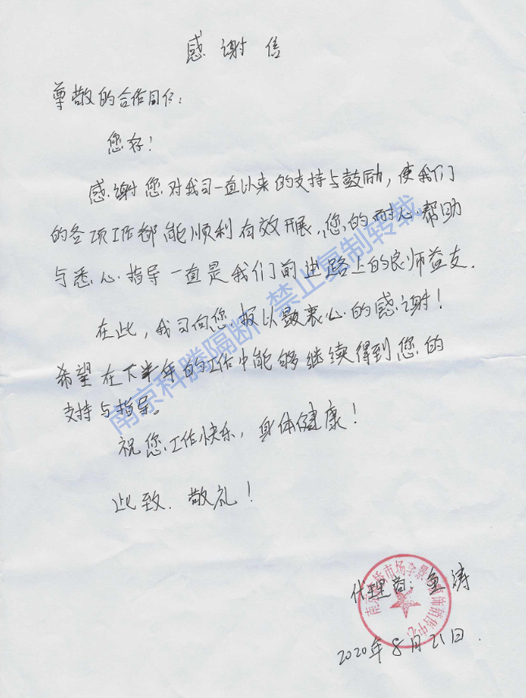 感谢信
尊敬的合作同仁：
您好！
感谢您对我司一直以来的支持与鼓励，使我们
的各项工作都能顺利有效开展，您的耐心帮助
与悉心指导一直是我们前进路上的良师益友．
在此，我司向您报以最衷心的感谢！
希望在下半年的工作中能够继续得到您的
支持与指导。
祝您工作快乐，身体健康！
此致．敬礼！
代理商：金涛
2020年8月21日．
南京科腾隔断 禁止复制转载